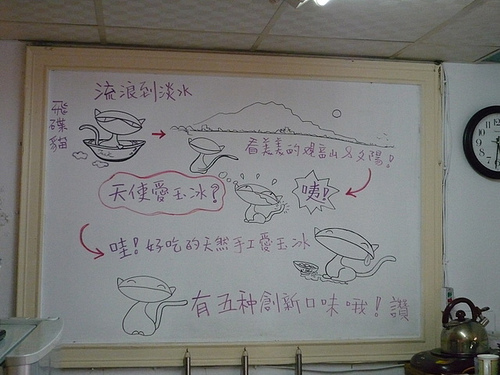 流浪到淡水
飛碟貓
看美美的觀音山&夕陽!
天使愛玉冰?
咦!
哇!好吃的天然手工愛玉冰
有五种創新口味哦!讚